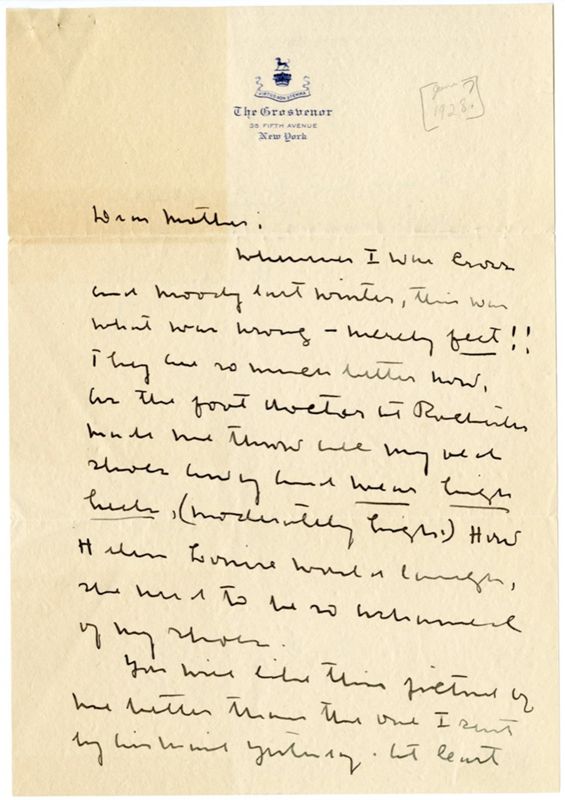 VIRTUS NON STEMMA
The Grosvenor
35 FIFTH AVENUE
New York
1928.
Dear Mother:
Whenever I was cross
and moody last winter, this was
what was wrong – merely feet!!
They are so much better now,
as the foot doctor at Rochester
made me throw all my old
shoes away and wear high
heels, (moderately high.) How
Helen Louise would laugh,
she used to be so ashamed
of my shoes.
You will like this picture of
me better than the one I sent
by air mail yesterday. At least